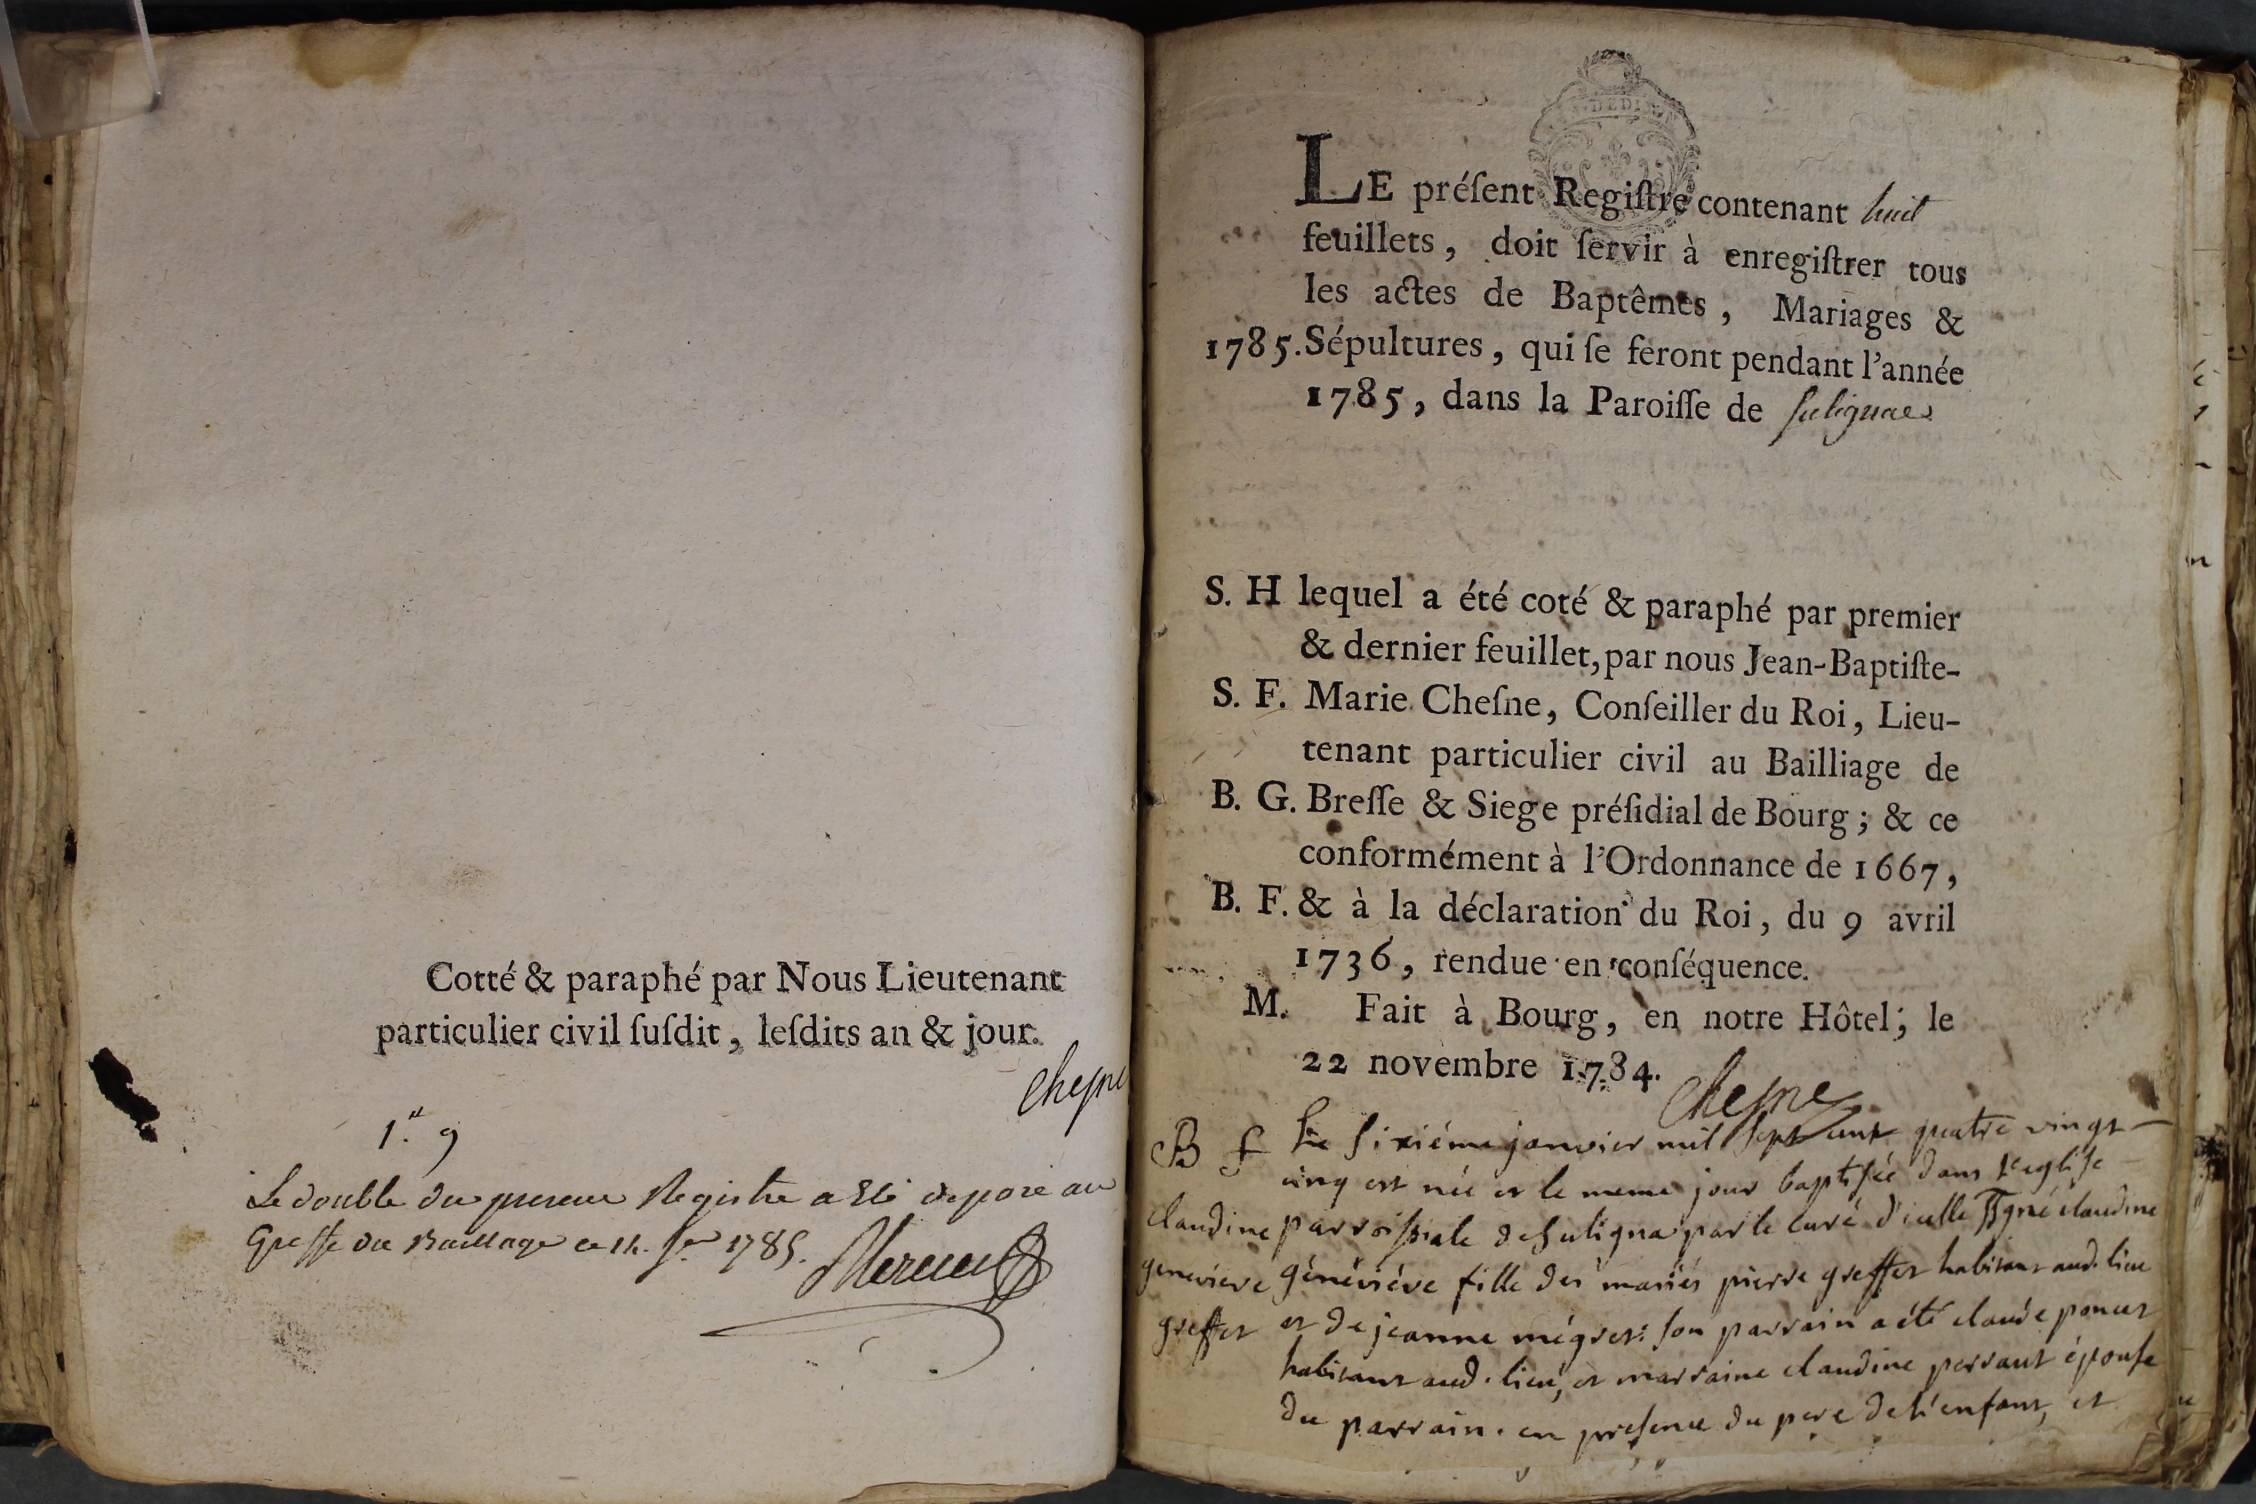 Cotté & paraphé par Nous Lieutenant
particulier civil ſuſdit, leſdits an & jour.
Chesne
1. 9
Le double du present Registre a Eté deposé au
Greffe du Baillage ce
1785.
LE préſent Regiſtre contenant huit
feuillets, doit ſervir à enregiſtrer tous
les actes de Baptêmes, Mariages &
1785. Sépultures, qui ſe feront pendant l'année
1785, dans la Paroiſſe de Sulignae
S. H lequel a été coté & paraphé par premier
& dernier feuillet, par nous Jean-Baptiſte-
S. F. Marie Cheſne, Conſeiller du Roi, Lieu-
tenant particulier civil au Bailliage de
B. G. Breſſe & Siege préſidial de Bourg; & ce
conformément à l'Ordonnance de 1667,
B. F. & à la déclaration du Roi, du 9 avril
1736, rendue en conſéquence.
M. Fait à Bourg, en notre Hôtel; le
22 novembre 1784.
Chesne
B f Le Sixiéme janvier mil Sept cent quatre vingt
cinq est née et le meme jour baptisée dans l'eglise
claudine parroissiale de Suligna par le curé d'icelle ssigné claudine
genevieve généviéve fille des mariés pierre greffet habitant aud. lieu
greffet et de jeanne mégret: son parrain a été claude poncet
habitant aud. lieu, et marraine claudine perraut épouse
du parrain. en presence du pere de l'enfant, et